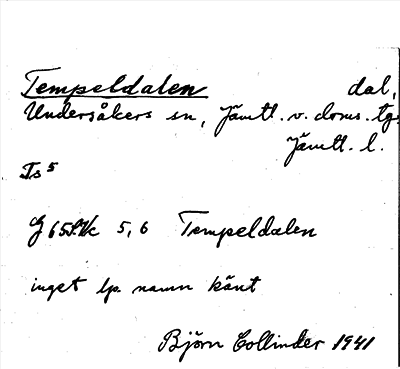 Tempeldalen dal,
Undersåkers sn, Jämtl. v. doms. tg.
Jämtl. l.
Is 5
5, 6 Tempeldalen
inget lp. namn känt
Björn Collinder 1941